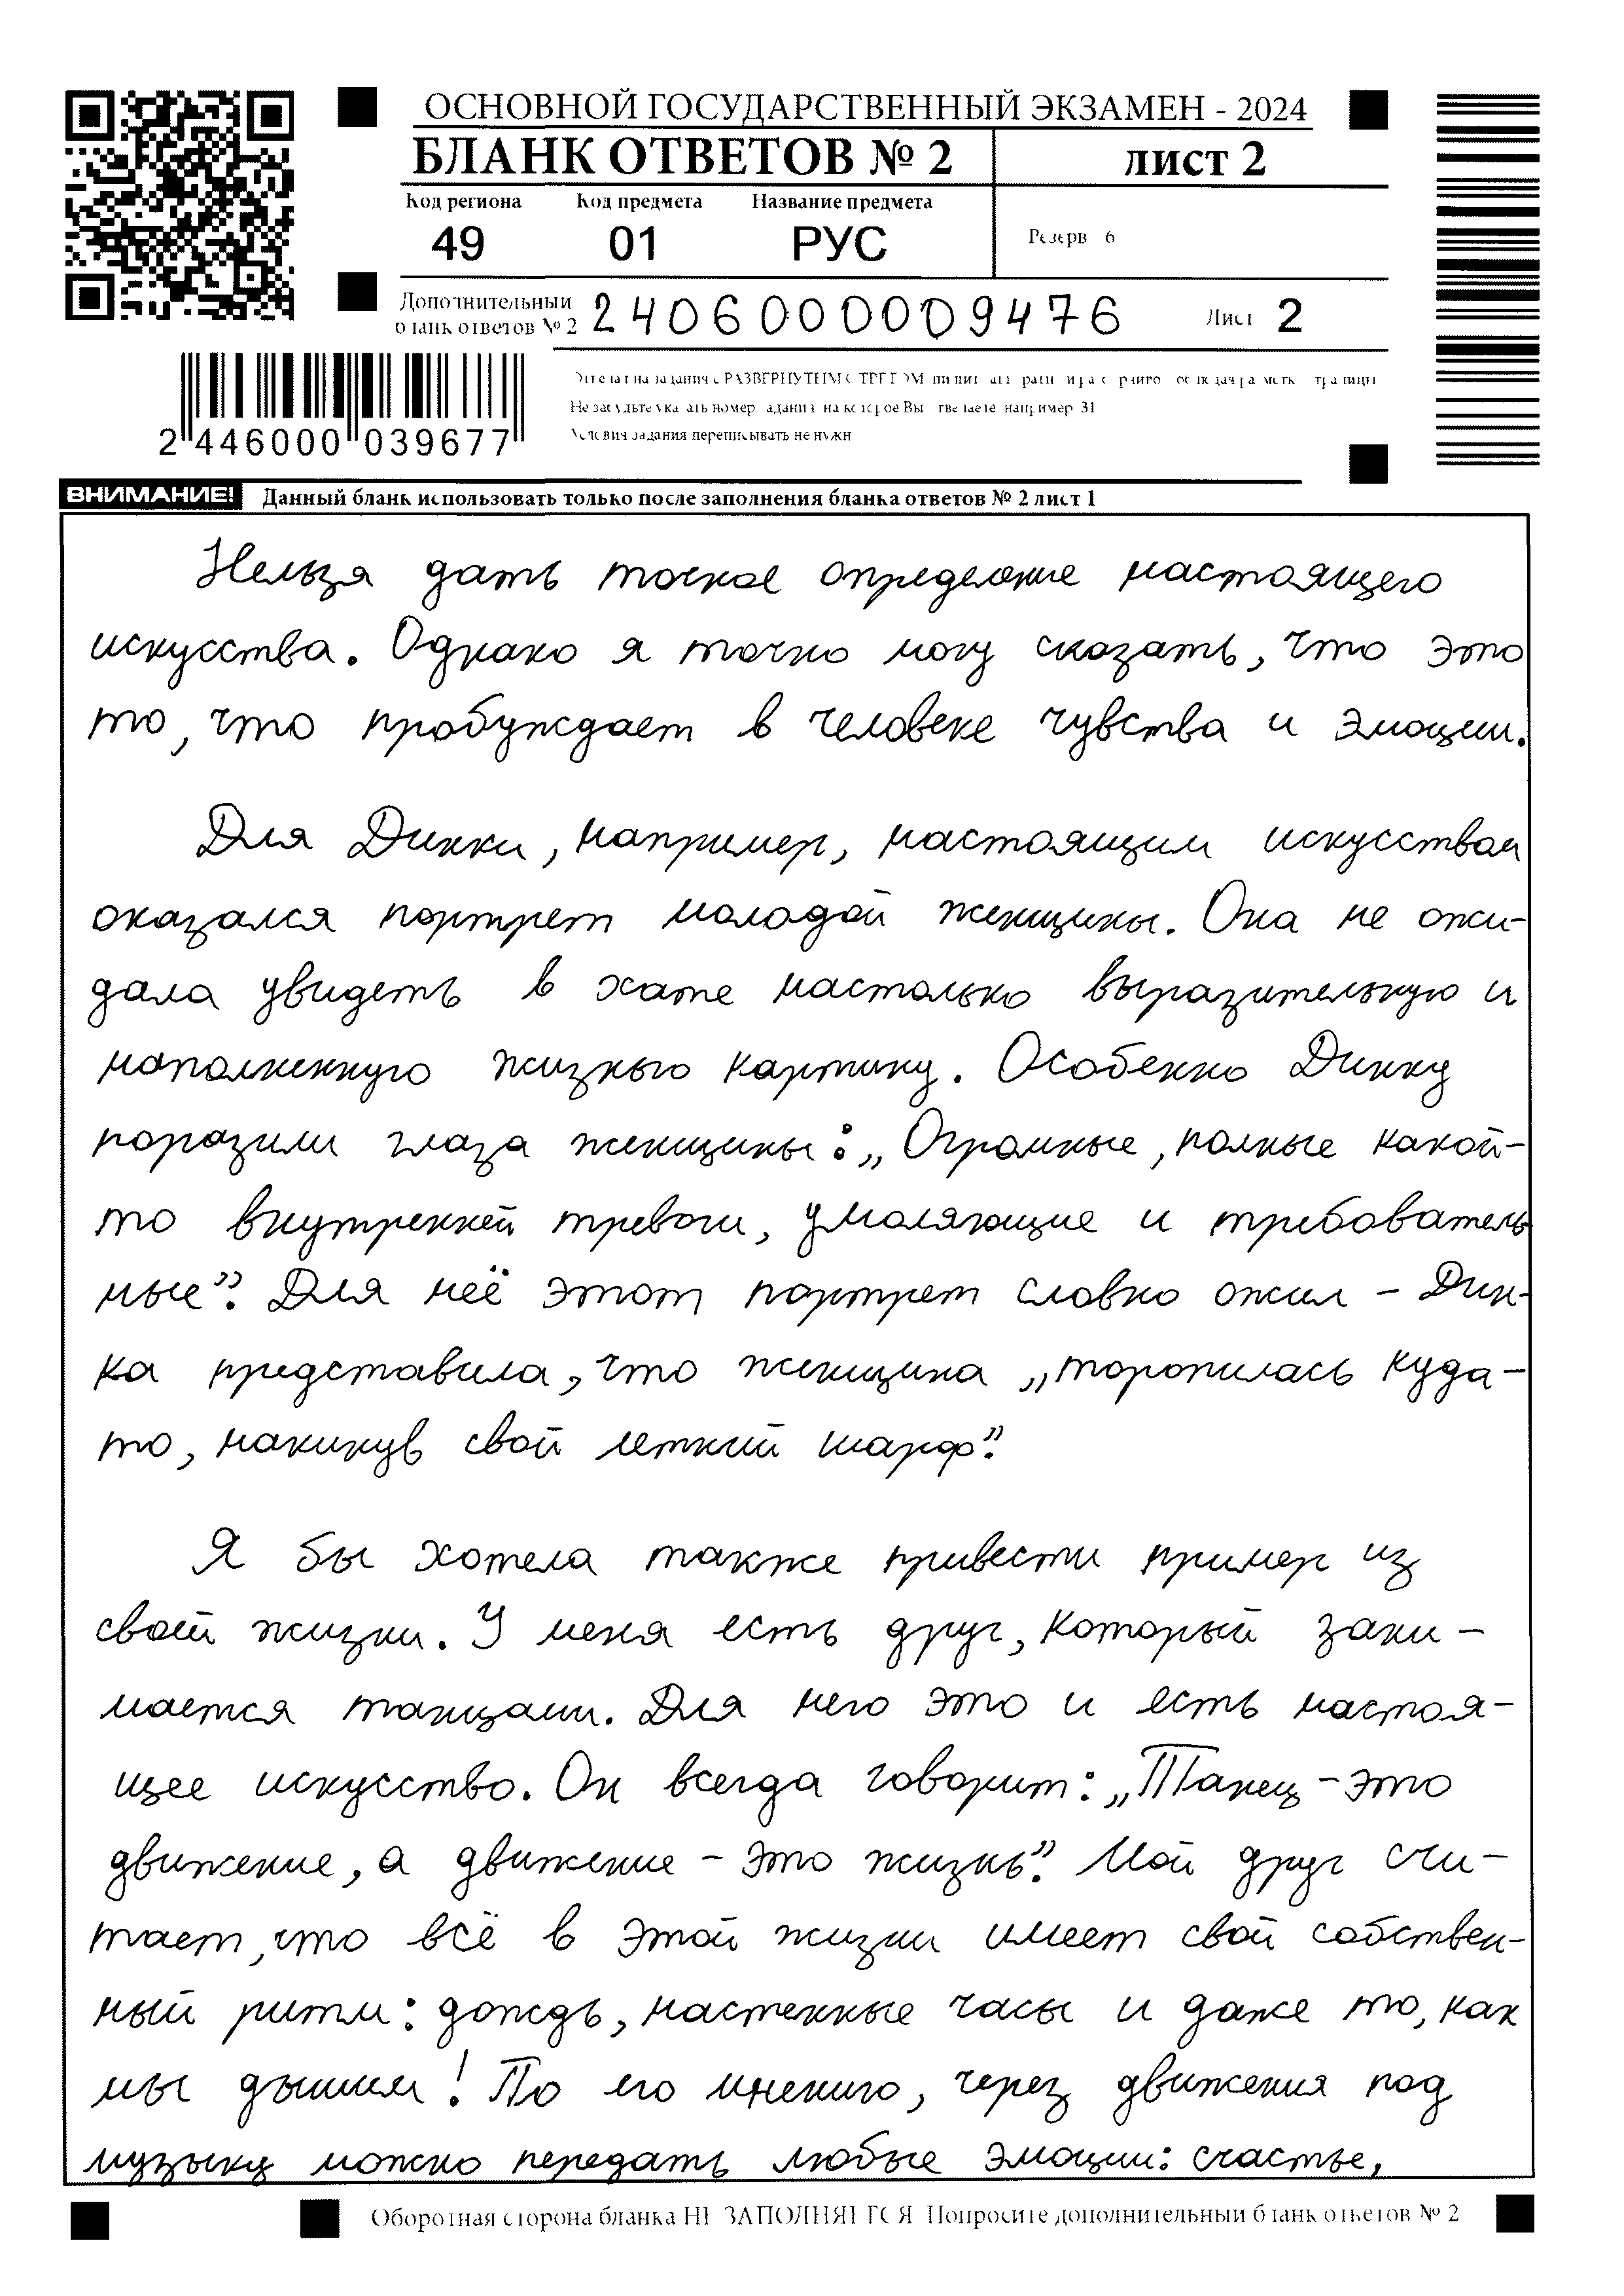 ОСНОВНОЙ ГОСУДАРСТВЕННЫЙ ЭКЗАМЕН - 2024
БЛАНК ОТВЕТОВ № 2
ЛИСТ 2
Код региона Код предмета Название предмета
49 01 РУС
Резерв 6
Дополнительный
бланк ответов № 2
2406000009476
Лист 2
2 446000 039677
Не забудьте указать номер задания на которое Вы отвечаете например 31
Условия задания переписывать не нужн
ВНИМАНИЕ! Данный бланк использовать только после заполнения бланка ответов № 2 лист 1
Нельзя дать точное определение настоящего
искусства. Однако я точно могу сказать, что это
то, что пробуждает в человеке чувства и эмоции.
Для Динки, например, настоящим искусством
оказался портрет молодой женщины. Она не ожи-
дала увидеть в хате настолько выразительную и
наполненную жизнью картину. Особенно Динку
поразили глаза женщины: „Огромные, полные какой-
то внутренней тревоги, умоляющие и требователь
ные”. Для неё этот портрет словно ожил – Дин-
ка представила, что женщина „торопилась куда-
то, накинув свой легкий шарф”.
Я бы хотела также привести пример из
своей жизни. У меня есть друг, который зани-
мается танцами. Для него это и есть настоя-
щее искусство. Он всегда говорит: „Танец – это
движение, а движение – это жизнь”. Мой друг счи-
тает, что всё в этой жизни имеет свой собствен-
ный ритм: дождь, настенные часы и даже то, как
мы дышим! По его мнению, через движения под
музыку можно передать любые эмоции: счастье,
Оборотная сторона бланка НЕ ЗАПОЛНЯЕТСЯ Попросите дополнительный бланк ответов № 2